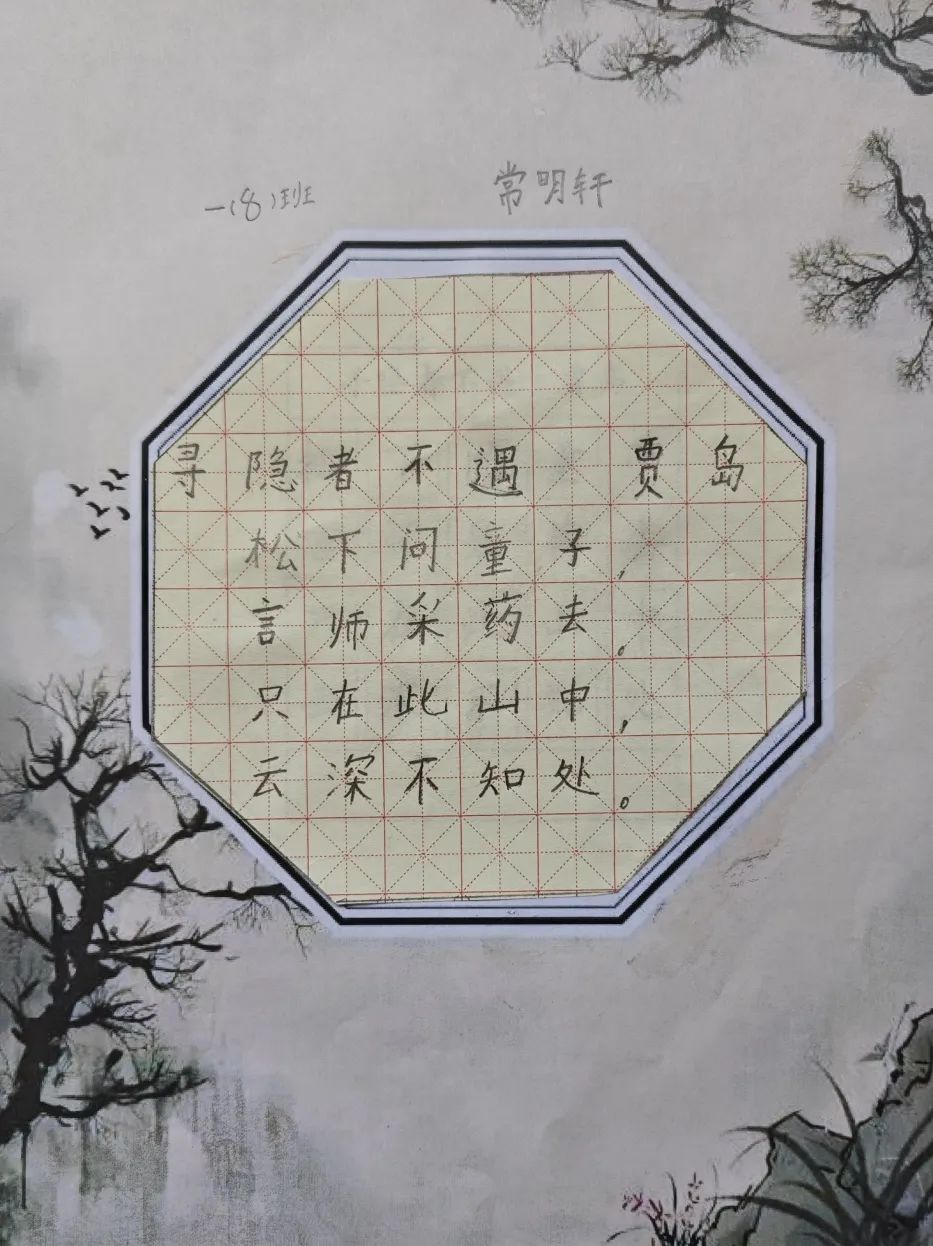 一(8)班 常明轩
寻隐者不遇 贾岛
松下问童子,
言师采药去。
只在此山中,
云深不知处。